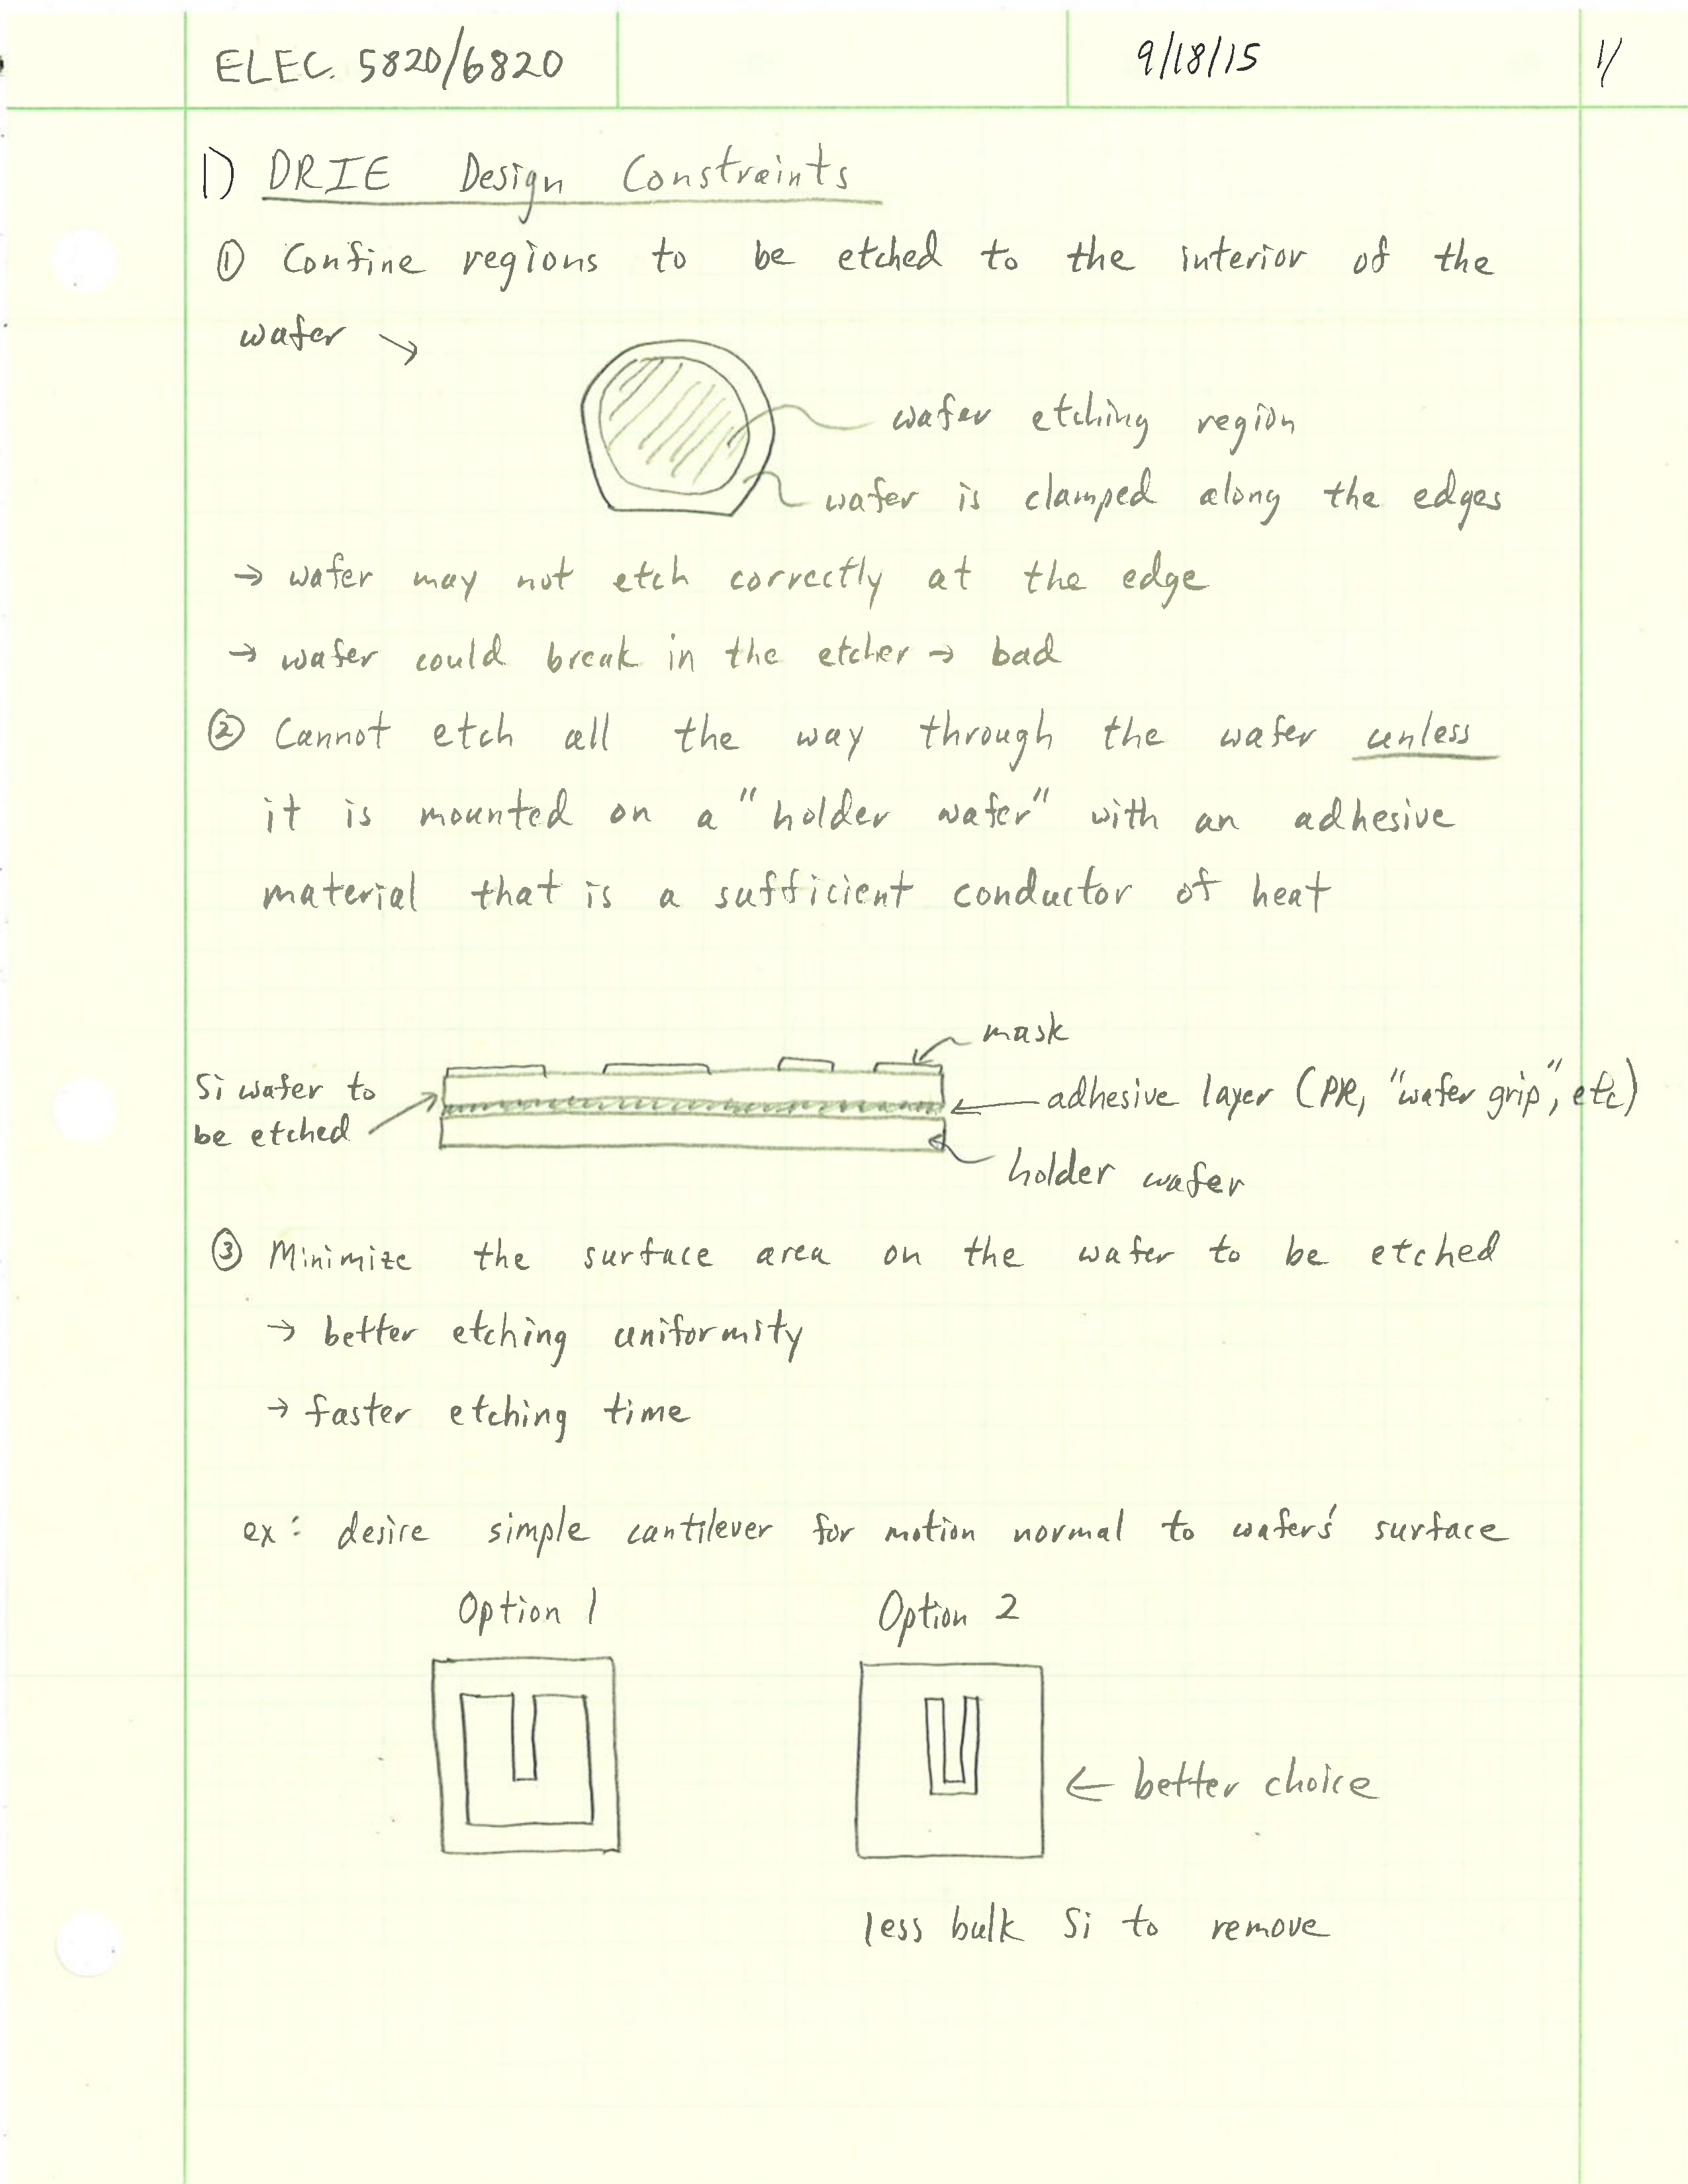 ELEC. 5820/6820 9/18/15 1/
1) DRIE Design Constraints
① Confine regions to be etched to the interior of the
wafer →
wafer etching region
wafer is clamped along the edges
→ wafer may not etch correctly at the edge
→ wafer could break in the etcher → bad
② Cannot etch all the way through the wafer unless
it is mounted on a "holder wafer" with an adhesive
material that is a sufficient conductor of heat
mask
Si wafer to
be etched
adhesive layer (PR, "wafer grip", etc)
holder wafer
③ Minimize the surface area on the wafer to be etched
→ better etching uniformity
→ faster etching time
ex: desire simple cantilever for motion normal to wafer's surface
Option 1 Option 2
← better choice
less bulk Si to remove